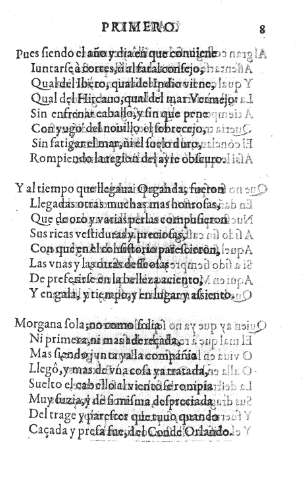 PRIMERO. 8
Pues siendo el año y dia en que conuiene
Iuntarse à cortes, ò al fatal consejo,
Qual del Ibero, qual del Indio viene,
Qual del Hircano, qual del mar Vermejo
Sin enfrenar cauallo, y sin que pene
Con yugo del nouillo el sobrecejo,
Sin fatigar el mar, ni el suelo duro,
Rompiendo la region del ayre obscuro.
Y al tiempo que llegaua Organda, fueron
Llegadas otras muchas mas honrosas,
Que de oro y varias perlas compusieron
Sus ricas vestiduras y preciosas,
Con que en el consistorio parescieron,
Las vnas y las otras desseosas
De preferirse en la belleza aciento,
Y en gala, y tiempo, y en lugar y assiento.
Morgana sola, no como solia
Ni primera, ni mas adereçada,
Mas siendo junta ya la compañia
Llegò, y mas de vna cosa ya tratada,
Suelto el cabello al viento se rompia
Muy suzia, y de si misma despreciada
Del trage y parescer que tuuo quando
Caçada y presa fue, del Conde Orlando.